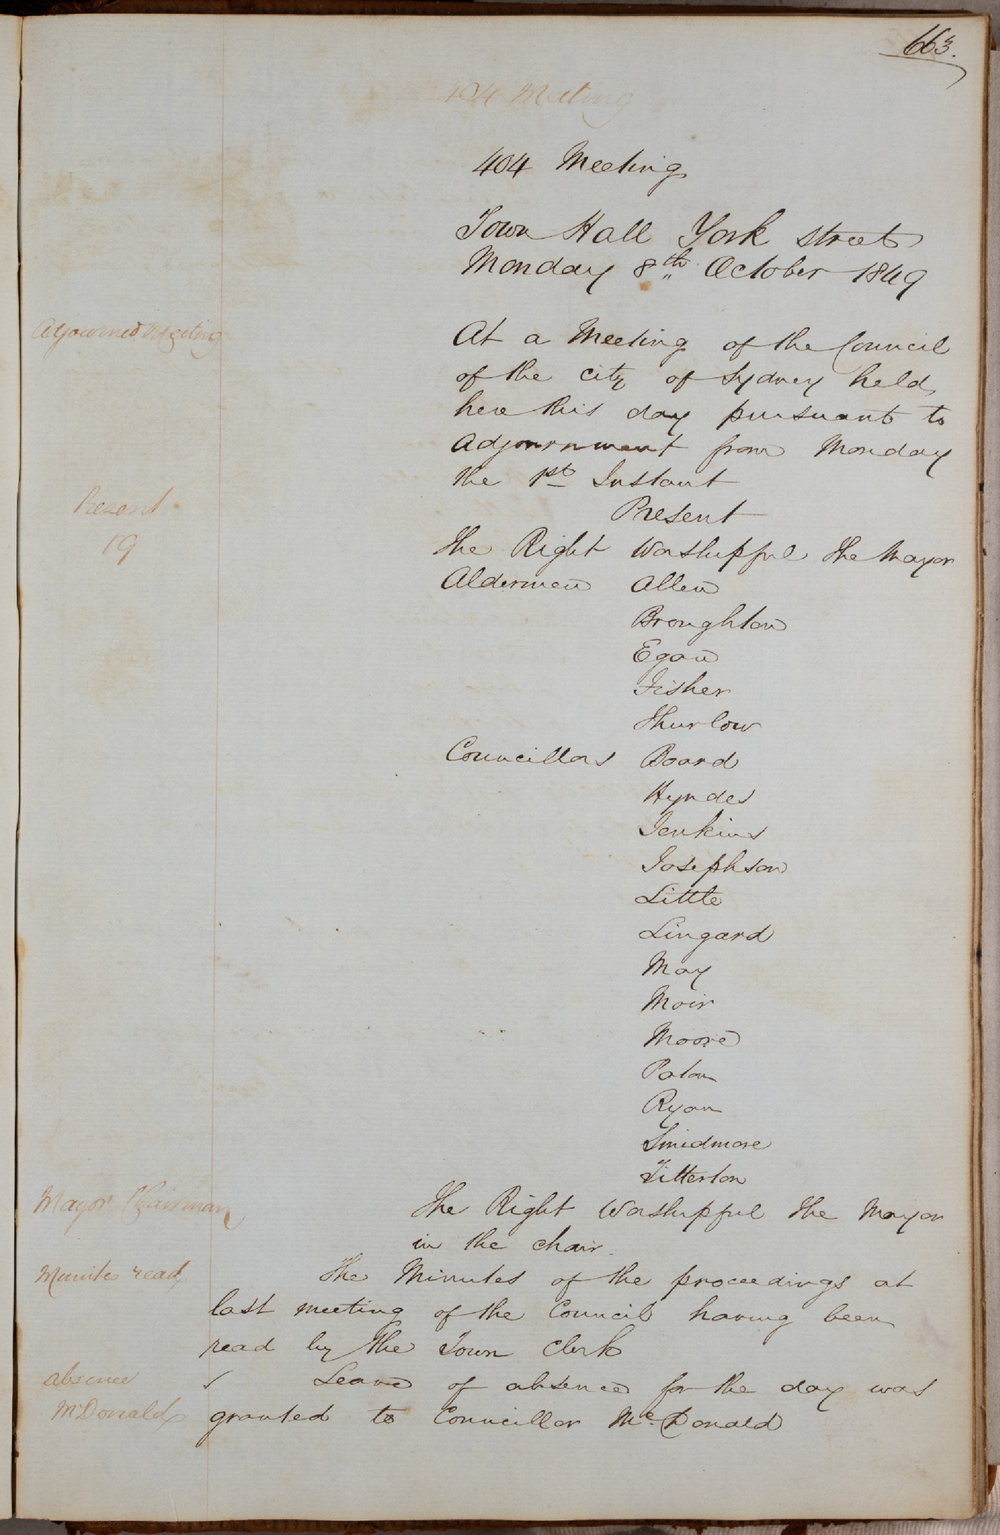 663.
404 Meeting
404 Meeting
Town Hall York street
Monday 8th October 1849
Adjourned Meeting
At a Meeting of the Council
of the city of Sydney held
here this day pursuant to
Adjournment from Monday
the 1st Instant
Present
19
Present
The Right Worshipful The Mayor
Aldermen Allen
Broughton
Egan
Fisher
Thurlow
Councillors Board
Hyndes
Jenkins
Josephson
Little
Lingard
May
Moir
Moore
Paton
Ryan
Smidmore
Titterton
Mayor Chairman
The Right Worshipful The Mayor
in the chair.
Minutes read
The Minutes of the proceedings at
last meeting of the Council having been
read by the Town Clerk
absence
McDonald
Leave of absence for the day was
granted to Councillor Mc.Donald